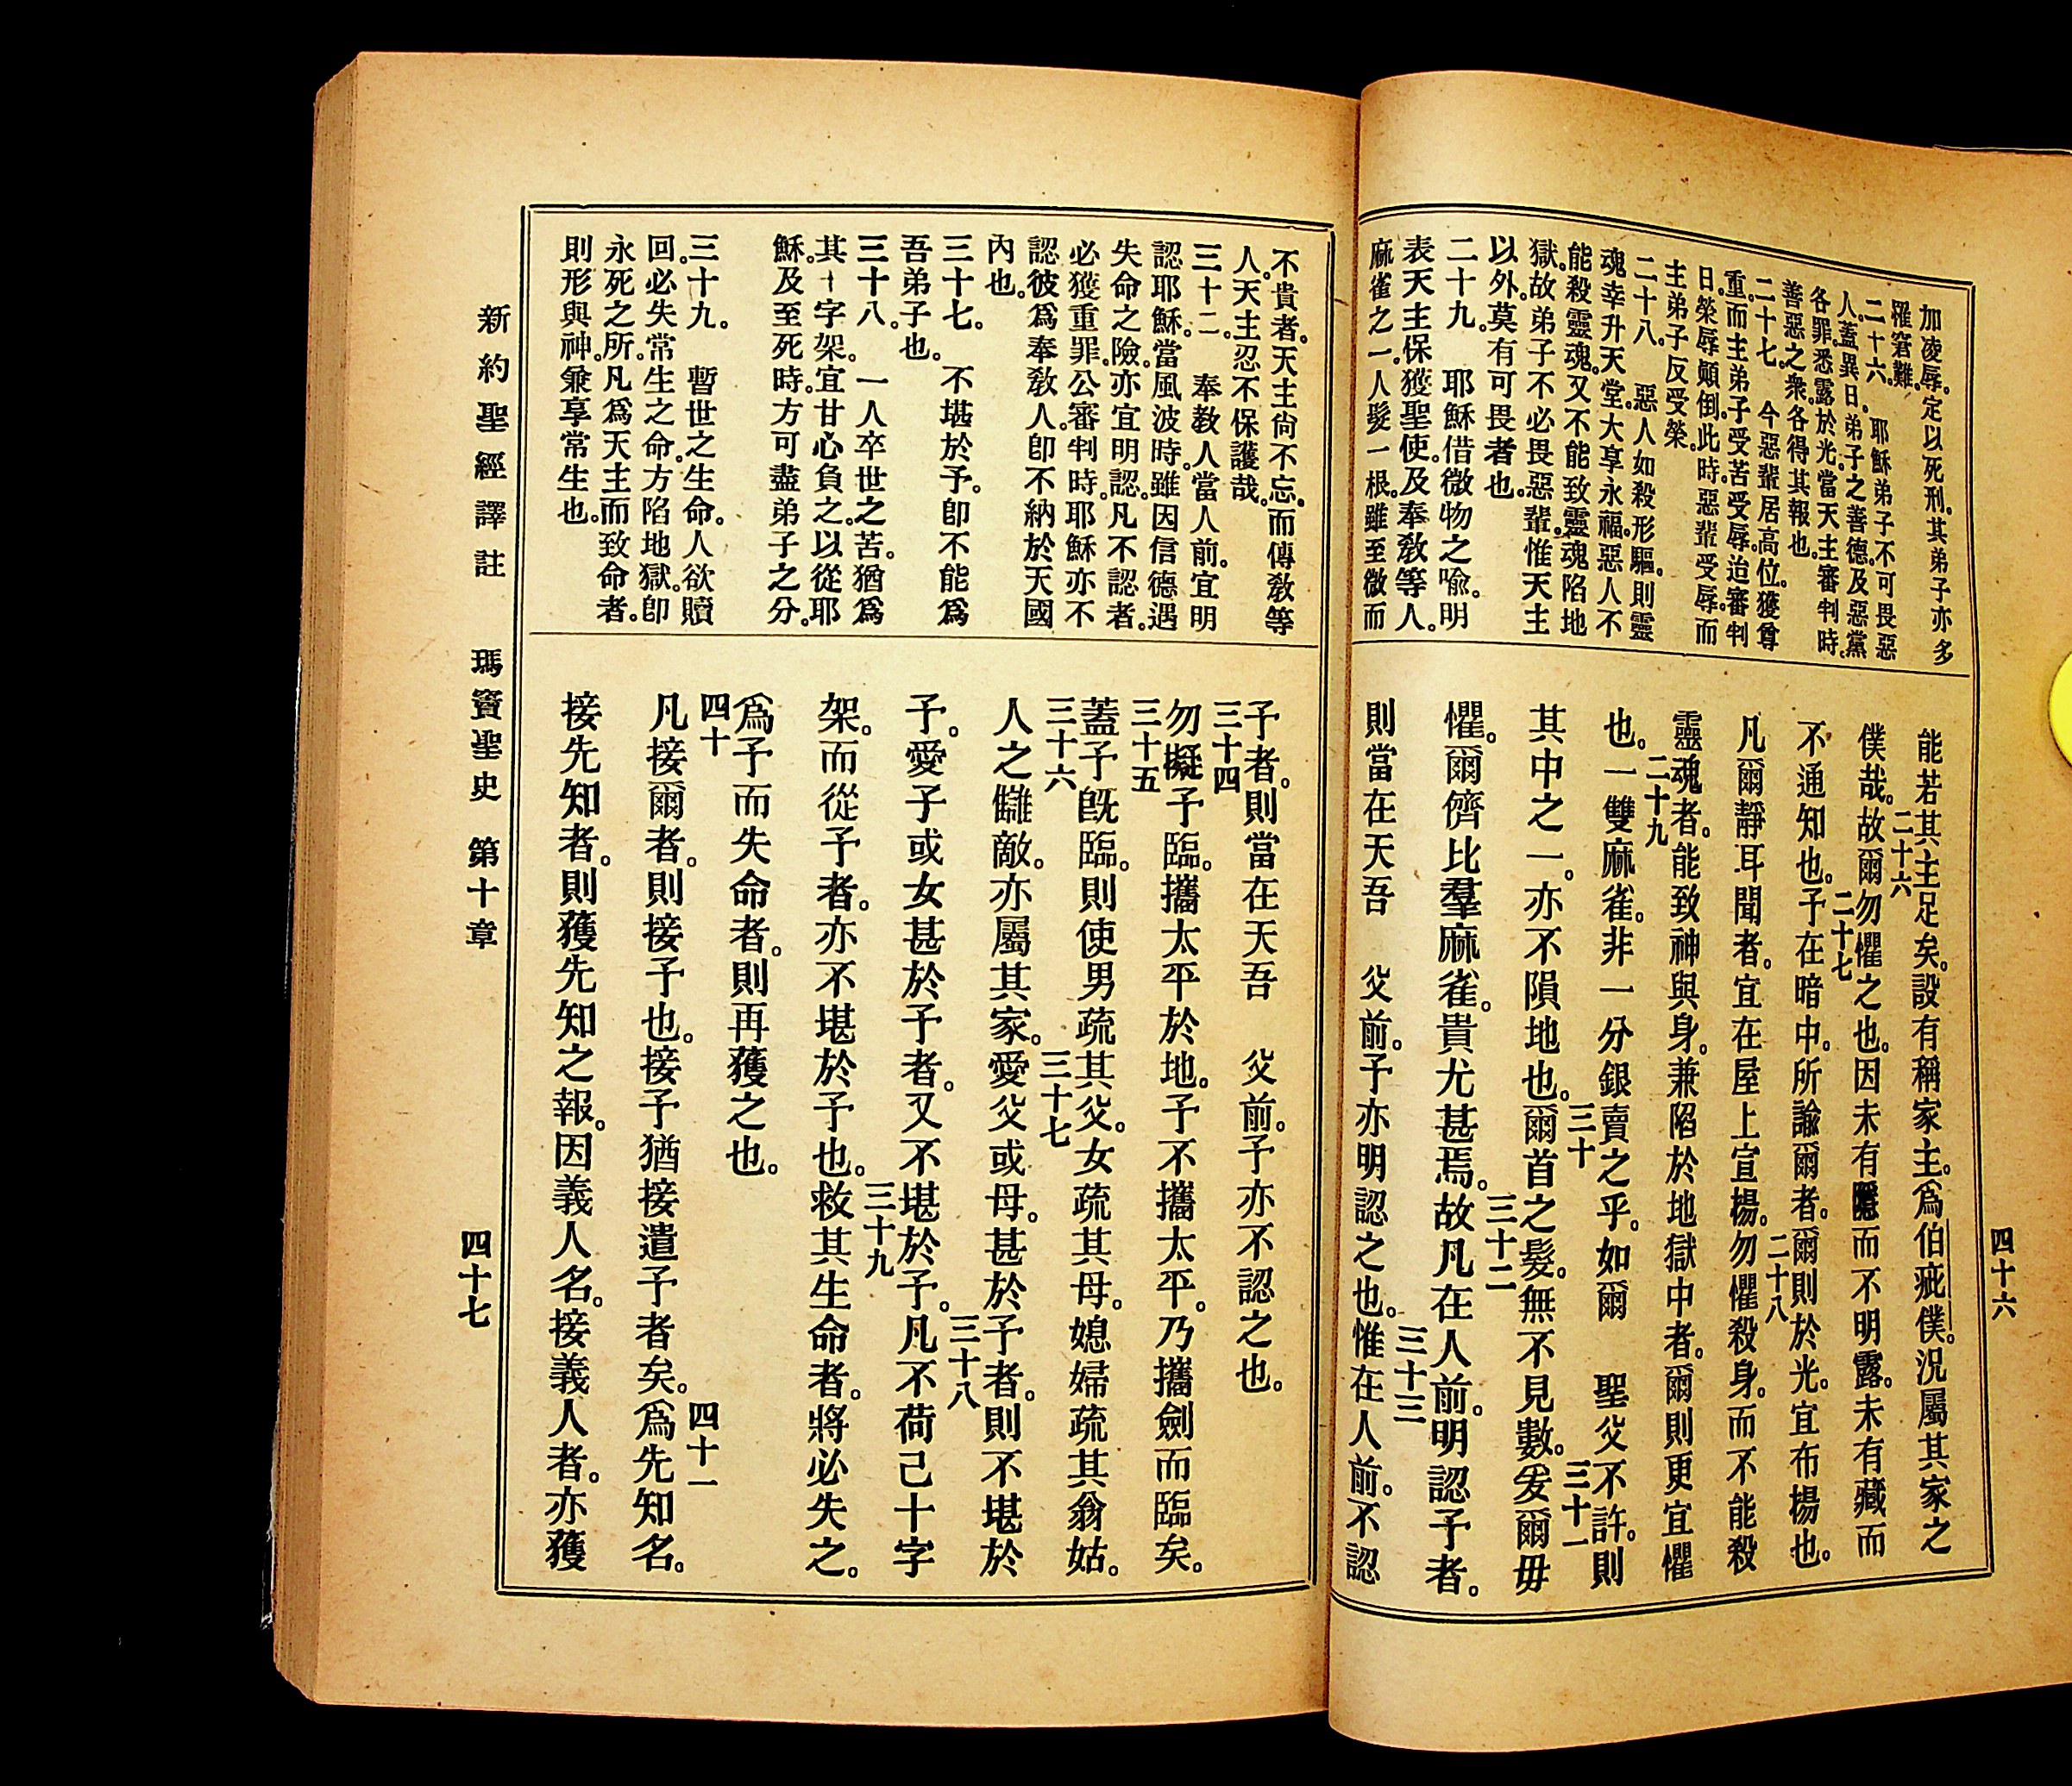 加凌辱。定以死刑。其弟子亦多
罹窘難。
二十六。 耶穌弟子不可畏惡
人。蓋異日。弟子之善德。及惡黨
各罪。悉露於光。當天主審判時。
善惡之衆。各得其報也。
二十七。 今惡輩居高位。獲尊
重。而主弟子。受苦受辱。迨審判
日。榮辱顛倒。此時惡輩受辱。而
主弟子反受榮。
二十八。 惡人如殺形軀。則靈
魂幸升天堂。大享永福。惡人不
能殺靈魂。又不能致靈魂陷地
獄。故弟子不必畏惡輩。惟天主
以外。莫有可畏者也。
二十九。 耶穌借微物之喩。明
表天主保獲聖使。及奉敎等人。
麻雀之一。人髮一根。雖至微而
能若其主足矣。設有稱家主。爲伯疵僕。況屬其家之
僕哉。二十六故爾勿懼之也。因未有隱而不明露。未有藏而
不通知也。二十七予在暗中。所諭爾者。爾則於光。宜布揚也。
凡爾靜耳聞者。宜在屋上宣揚。二十八勿懼殺身。而不能殺
靈魂者。能致神與身。兼陷於地獄中者。爾則更宜懼
也。二十九一雙麻雀。非一分銀賣之乎。如爾 聖父不許。則
其中之一。亦不隕地也。三十爾首之髮。無不見數。三十一爰爾毋
懼。爾儕比羣麻雀。貴尤甚焉。三十二故凡在人前。明認予者。
則當在天吾 父前。予亦明認之也。三十三惟在人前。不認
四十六
不貴者。天主尙不忘。而傳敎等
人。天主忍不保護哉。
三十二。 奉敎人當人前。宜明
認耶穌。當風波時。雖因信德遇
失命之險。亦宜明認。凡不認者。
必獲重罪。公審判時。耶穌亦不
認彼爲奉敎人。卽不納於天國
內也。
三十七。 不堪於予。卽不能爲
吾弟子也。
三十八。 一人卒世之苦。猶爲
其十字架。宜甘心負之。以從耶
穌。及至死時。方可盡弟子之分。
三十九。 暫世之生命。人欲贖
回。必失常生之命。方陷地獄。卽
永死之所。凡爲天主而致命者。
則形與神。兼享常生也。
予者。則當在天吾 父前。予亦不認之也。
三十四勿擬予臨。攜太平於地。予不攜太平。乃攜劍而臨矣。
三十五蓋予旣臨。則使男疏其父。女疏其母。媳婦疏其翁姑。
三十六人之讎敵。亦屬其家。三十七愛父或母。甚於予者。則不堪於
予。愛子或女甚於予者。又不堪於予。三十八凡不荷己十字
架。而從予者。亦不堪於予也。三十九救其生命者。將必失之。
爲予而失命者。則再獲之也。
四十凡接爾者。則接予也。接予猶接遣予者矣。四十一爲先知名。
接先知者。則獲先知之報。因義人名。接義人者。亦獲
新約聖經譯註 瑪竇聖史 第十章 四十七